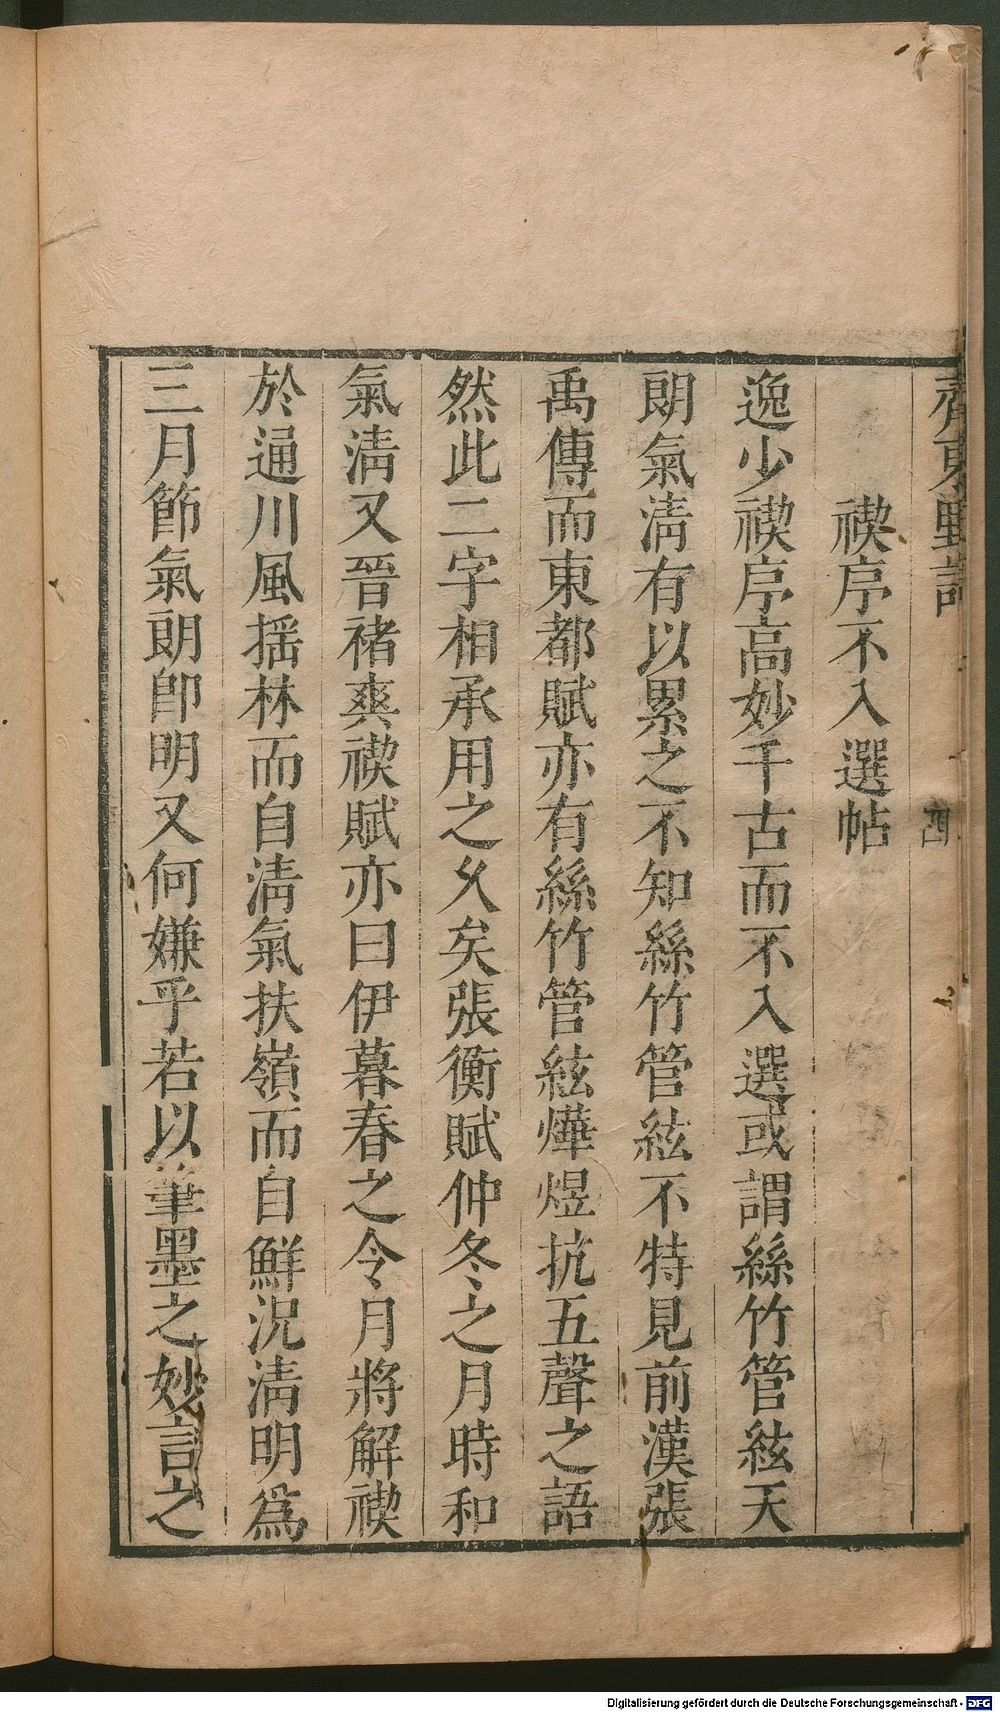 齊東野語
四
禊序不入選帖
逸少禊序高妙千古而不入選或謂絲竹管絃天
朗氣淸有以累之不知絲竹管絃不特見前漢張
禹傳而東都賦亦有絲竹管絃燁煜抗五聲之語
然此二字相承用之久矣張衡賦仲冬之月時和
氣淸又晉褚爽禊賦亦曰伊暮春之令月將解禊
於通川風揺林而自淸氣扶嶺而自鮮況淸明爲
三月節氣朗卽明又何嫌乎若以筆墨之妙言之
Digitalisierung gefördert durch die Deutsche Forschungsgemeinschaft - DFG